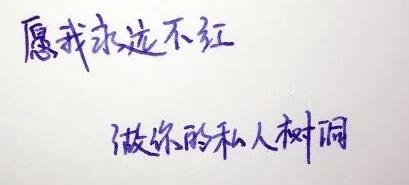 愿我永远不红
做你的私人树洞